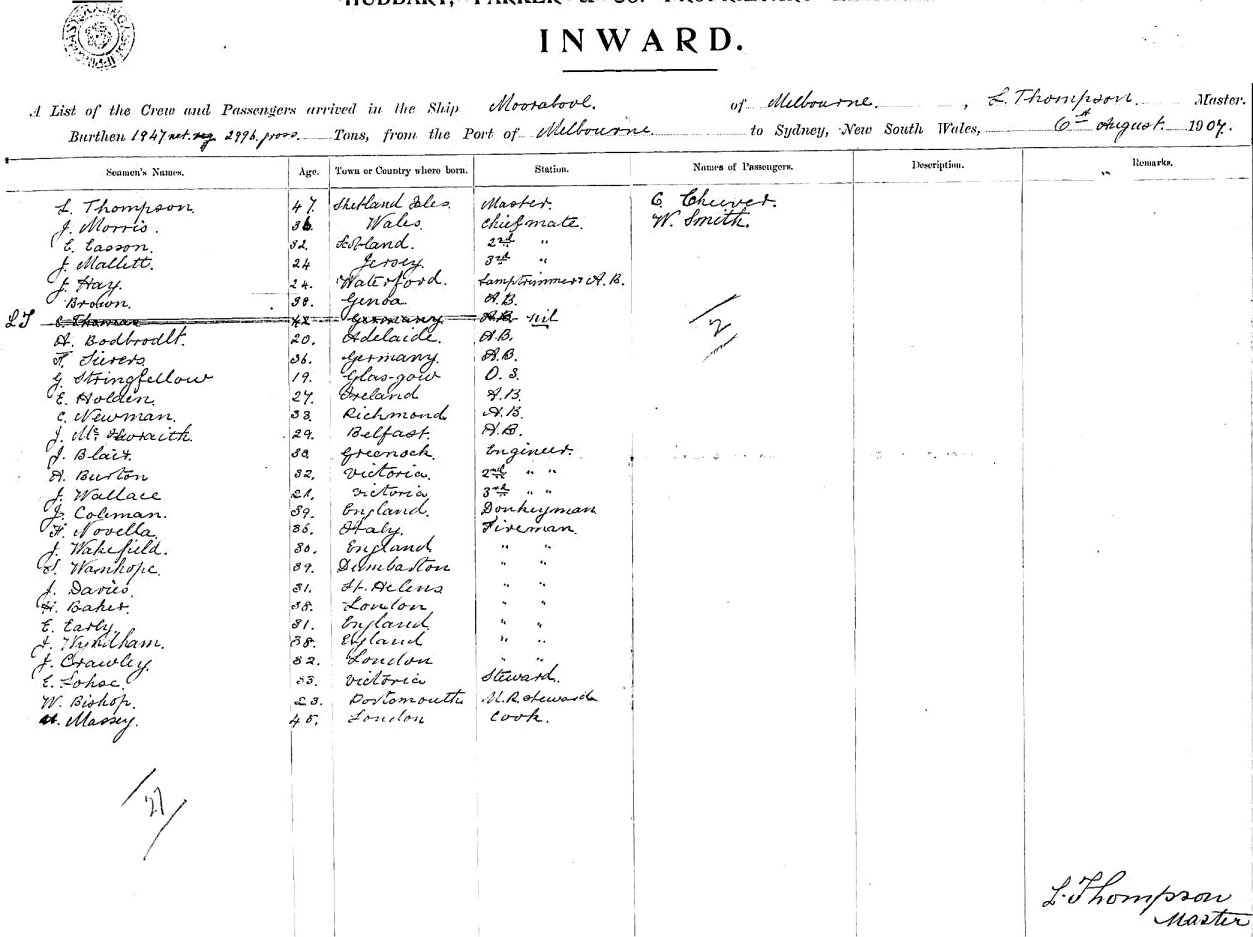 HUDDART, PARKER & CO. PROPRIETARY
INWARD.
A List of the Crew and Passengers arrived in the Ship Moorabool. of Melbourne. , L. Thompson. Master.
Burthen 1947 net. reg. 2996. gross. Tons, from the Port of Melbourne. to Sydney, New South Wales, 6th August 1907.
Seamen's Names. Age. Town or Country where born. Station. Names of Passengers. Description. Remarks.
L. Thompson. 47. Shetland Isles. Master. C. Cheever.
J. Morris. 36. Wales. Chief mate. W. Smith.
E. Easson. 32. Scotland. 2nd "
J. Mallett. 24 Jersey. 3rd "
J. Hay. 24. Waterford. Lamptrimmer & A.B.
Brown. 30. Genoa. A.B.
LT E. Thomas 42 Germany A.B. nil
A. Bodbrodlt. 20. Adelaide. A.B.
F. Sievers. 36. Germany. A.B.
G. Stringfellow 19. Glas-gow O.S.
E. Holden. 27. Ireland A.B.
C. Newman. 33. Richmond A.B.
J. Mc 29. Belfast. A.B.
J. Blair. Greenock. Engineer.
A. Burton 32. Victoria. 2nd " "
J. Wallace Victoria 3rd " "
J. Coleman. 39. England. Donkeyman
F. Novella. 35. Italy. Fireman.
J. Wakefield. 30. England " "
Warnhope. 39. Dumbarton " "
J. Davies. 31. St. Helens " "
H. Baker. 38. London " "
E. Early. 31. England " "
J. Wyndham. 38. England " "
J. Crawley. 32. London " "
E. Lohse. 33. Victoria Steward.
W. Bishop. 23. Portsmouth M.R. Steward
Massey. 45. London Cook.
2
27
L. Thompson
Master